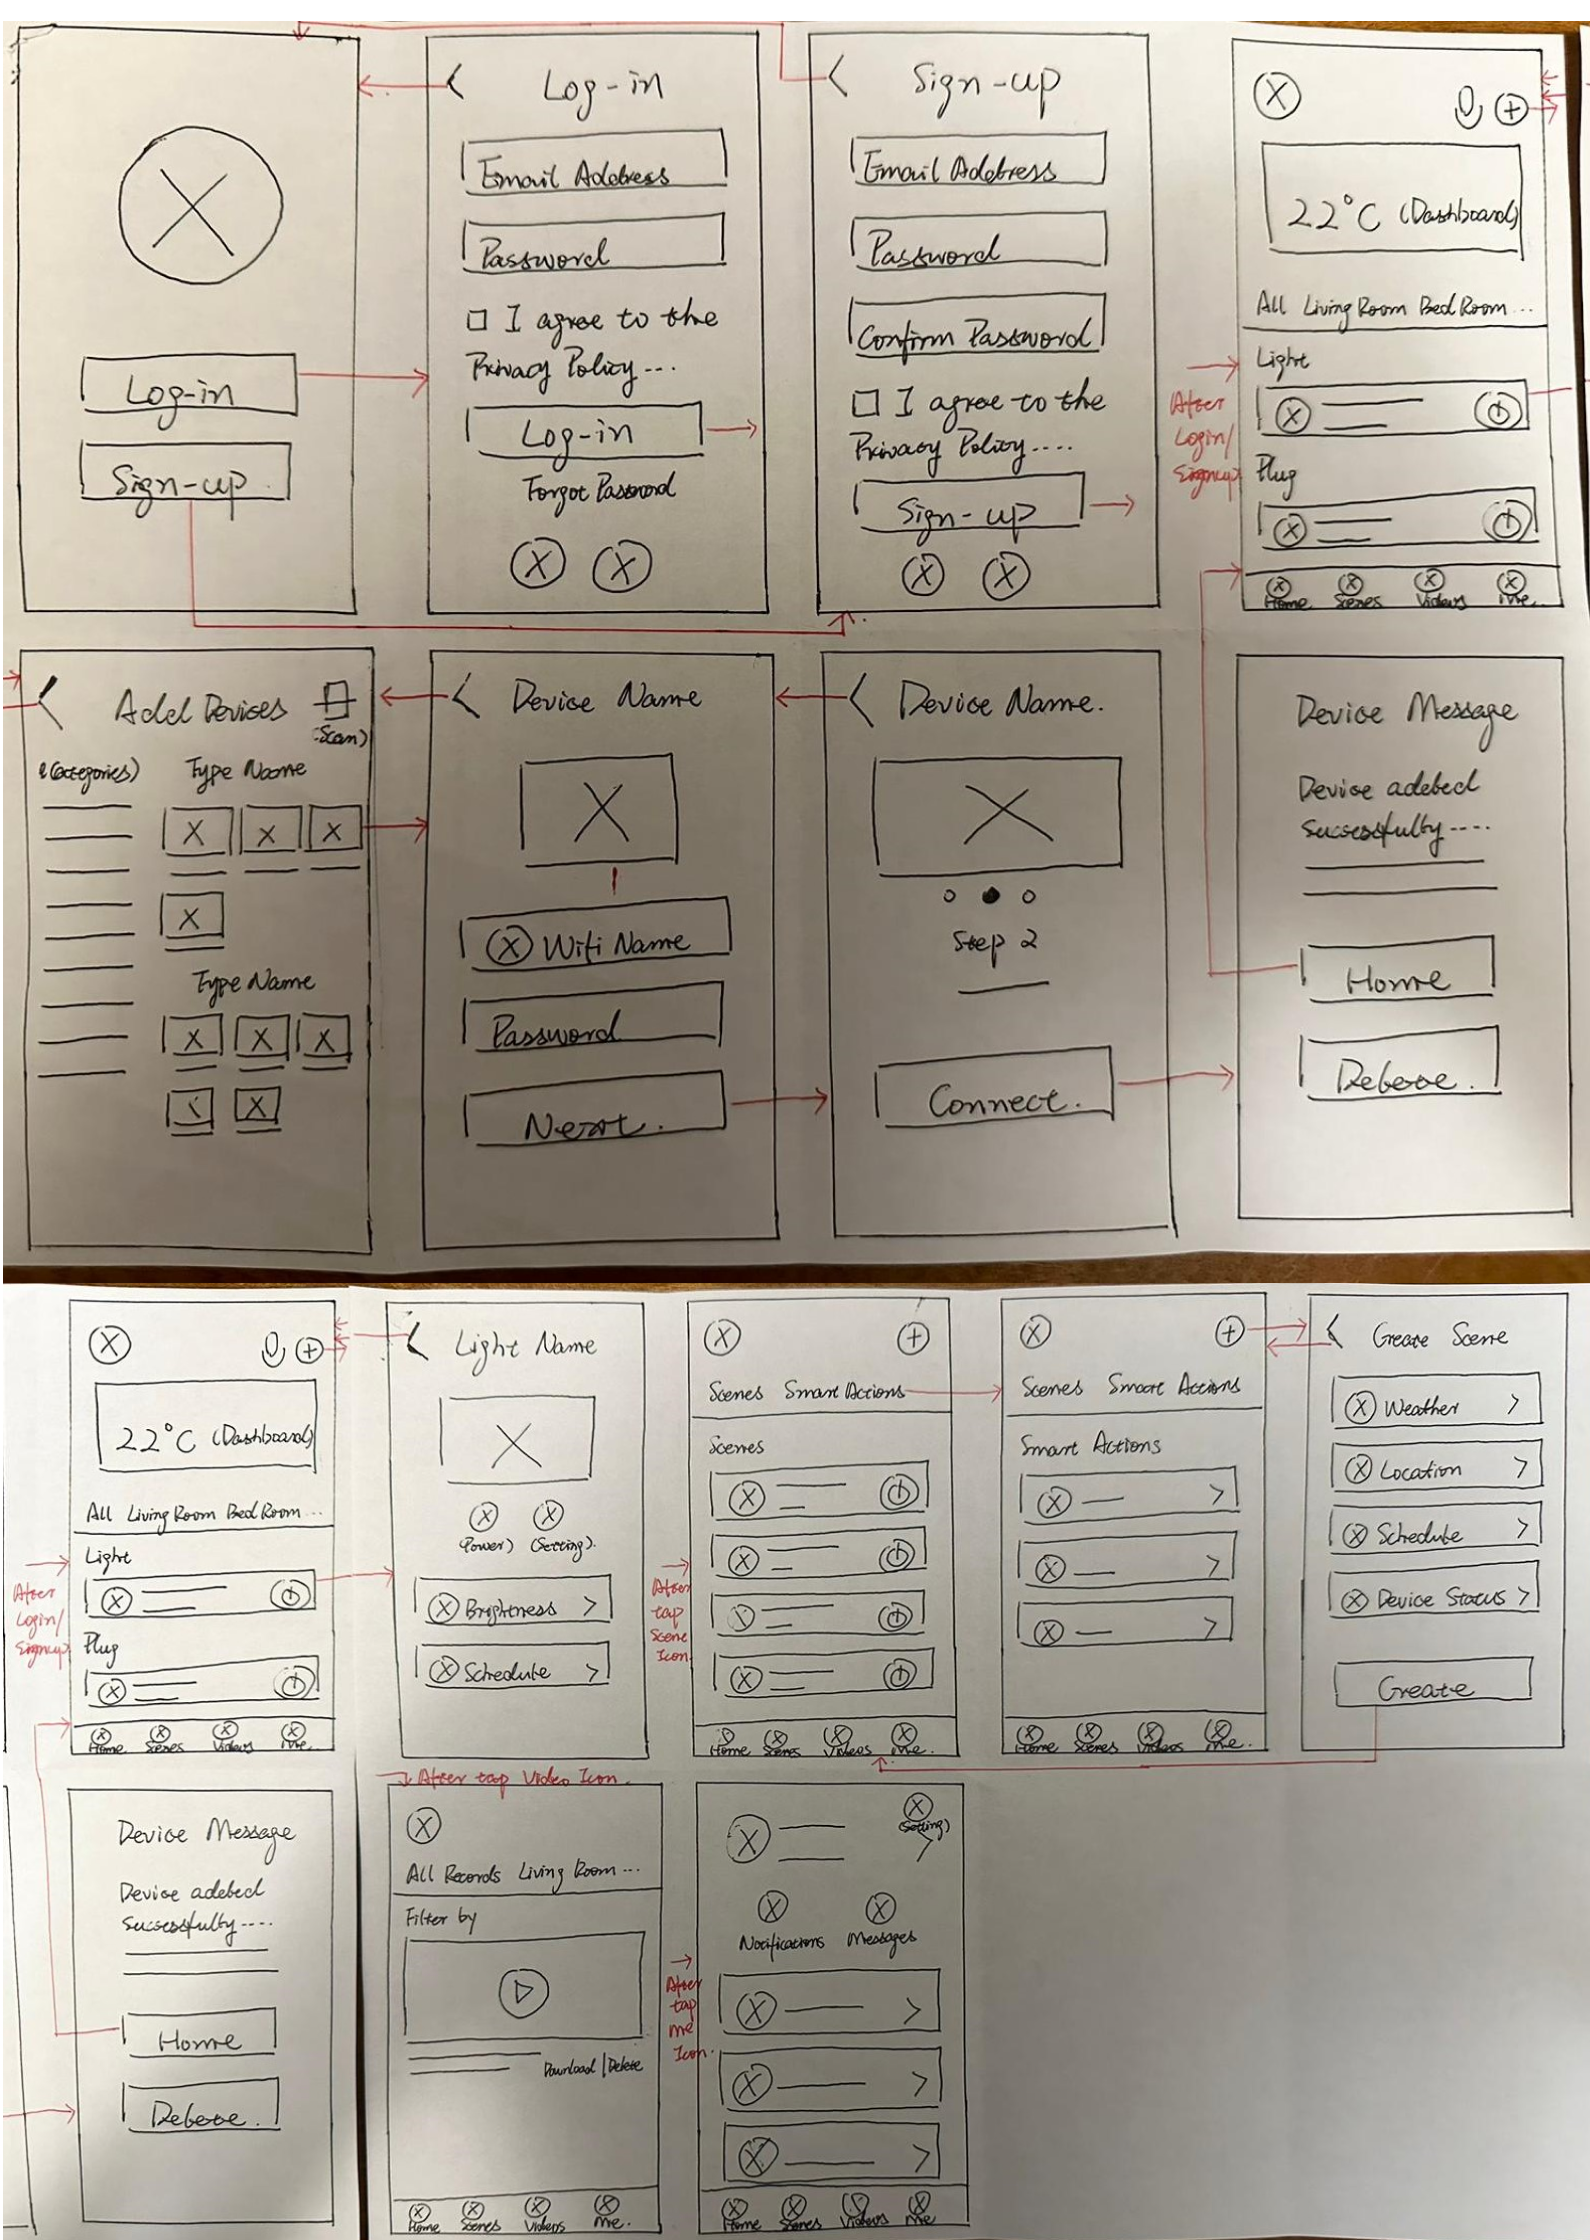 Log-in
Sign-up
Log-in
Email Address
Password
I agree to the
Privacy Policy ....
Log-in
Forgot Password
Sign-up
Email Address
Password
Confirm Password
I agree to the
Privacy Policy ....
Sign-up
22°C (Dashboard)
All Living Room Bed Room ...
Light
Plug
Home Scenes Videos Me.
After
Login/
Signup
Add Devices
(Scan)
(Categories)
Type Name
Type Name
Device Name
Wifi Name
Password
Next.
Device Name.
Step 2
Connect.
Device Message
Device added
Successfully ----
Home
22°C (Dashboard)
All Living Room Bed Room ...
Light
Plug
Home Scenes Videos Me.
After
Login/
Signup
Light Name
(Power) (Setting).
Brightness >
Schedule >
After
tap
Scene
Icon
Scenes Smart Actions
Scenes
Home Scenes Videos Me.
Scenes Smart Actions
Smart Actions
Home Scenes Videos Me.
Create Scene
Weather >
Location >
Schedule >
Device Status >
Create
Device Message
Device added
Successfully ----
Home
After tap Video Icon.
All Records Living Room ...
Filter by
Download | Delete
Home Scenes Videos Me.
After
tap
me
Icon.
(Setting)
Notifications Messages
Home Scenes Videos Me